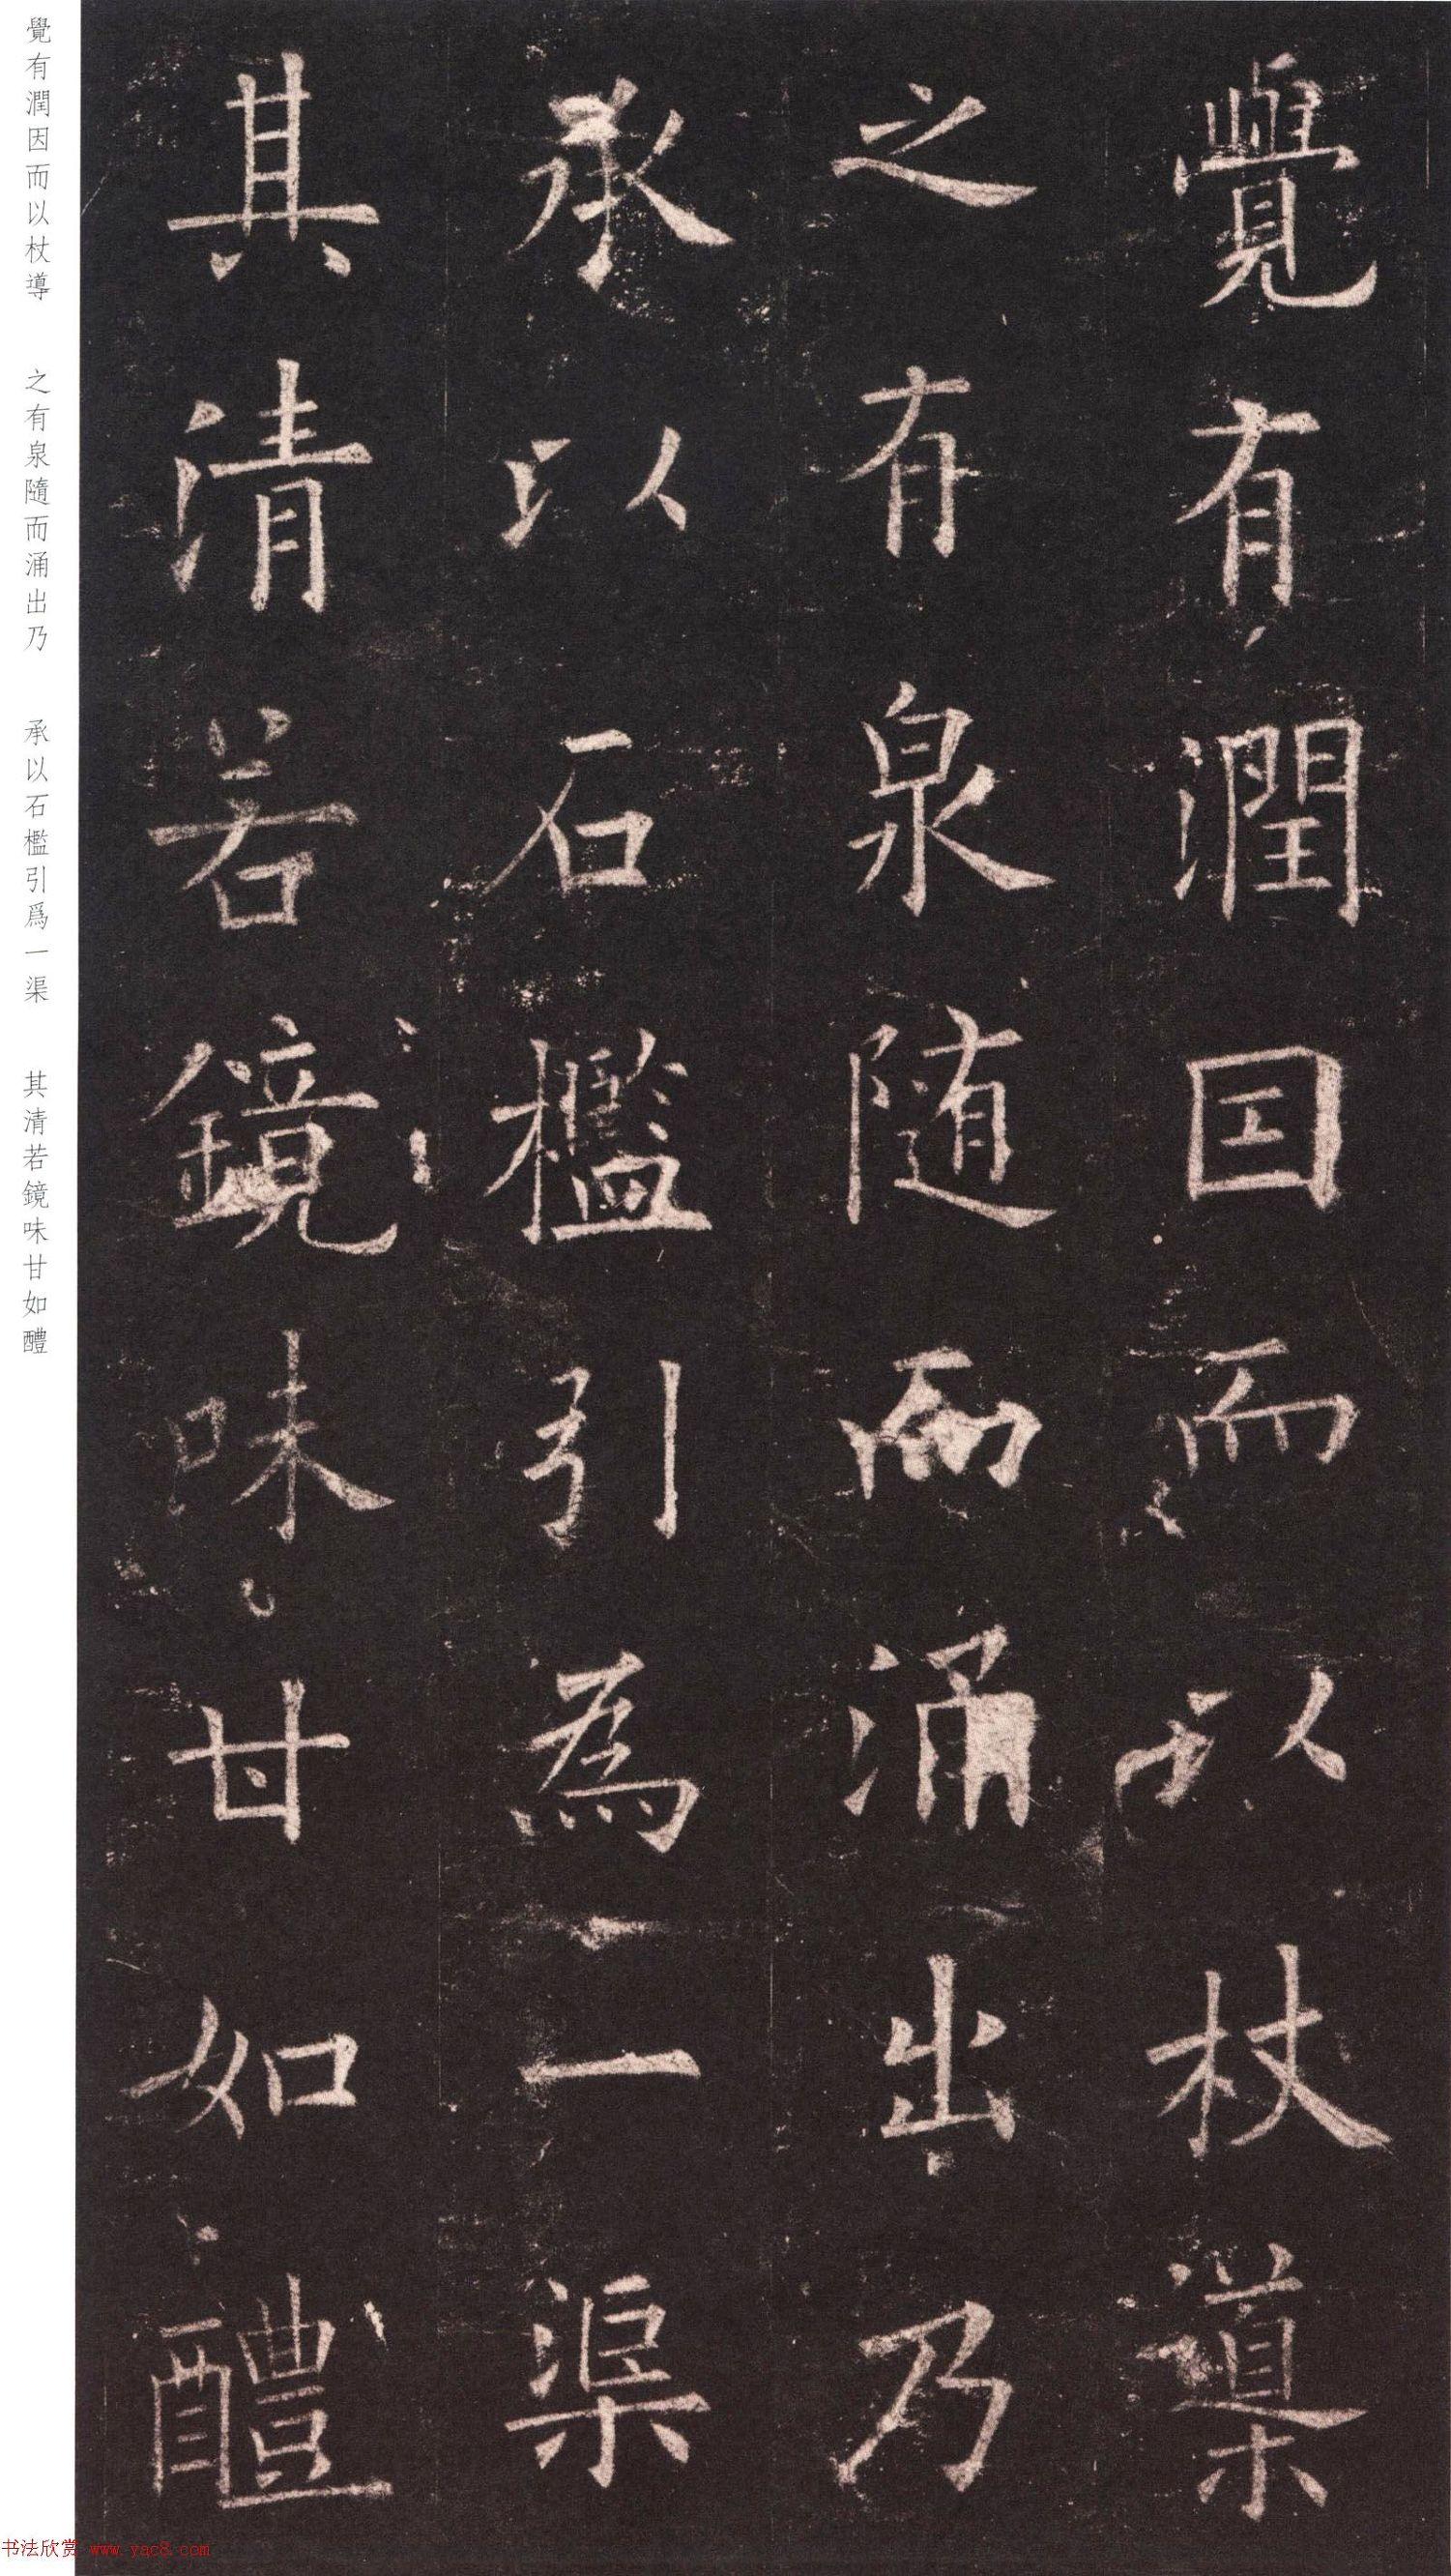 覺有潤因而以杖導
之有泉隨而涌出乃
承以石檻引為一渠
其清若鏡味甘如醴
覺有潤因而以杖導 之有泉隨而涌出乃 承以石檻引爲一渠 其清若鏡味甘如醴
书法欣赏 www.yac8.com